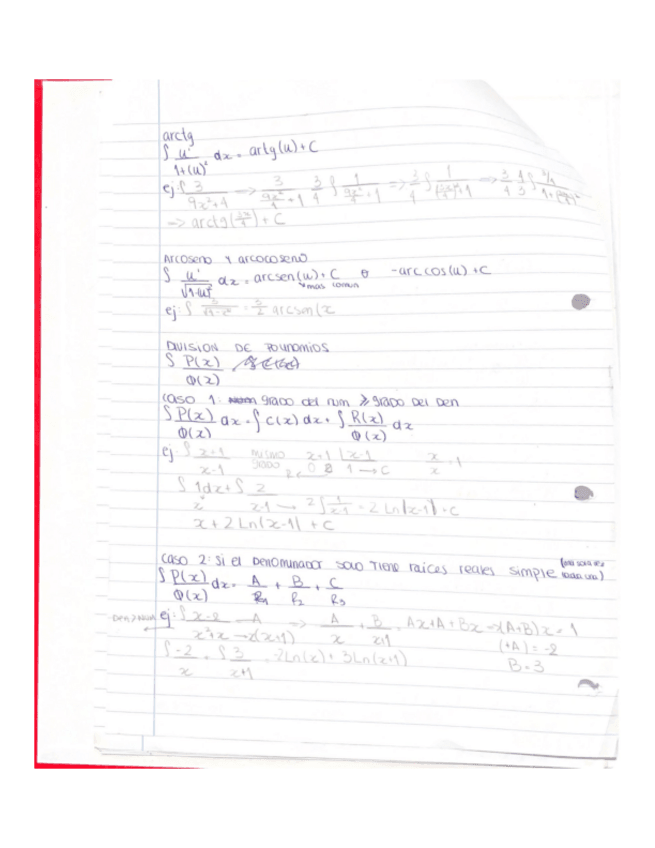 arctg
∫ u' / 1+(u)² dx = artg(u)+C
ej: ∫ 3 / 9x²+4 => 3 / 9x²/4 +1 3/4 ∫ 1 / 9x²/4 +1 => 3/4 ∫ 1 / +1 => 3/4
=> arctg(3x/2) + C
Arcoseno y arcocoseno
∫ u' / dx = arcsen(u)+C o -arccos(u)+C
mas comun
ej: ∫ arcsen(x
DIVISION DE POLINOMIOS
∫ P(x) / Q(x)
Caso 1: grado del num ≥ grado del den
∫ P(x) / Q(x) dx = ∫ C(x) dx + ∫ R(x) / Q(x) dx
ej: ∫ x+1 / x-1 mismo grado x+1 | x-1 x / x = 1
R 0 2 1 → C
∫ 1dx + ∫ 2 / x-1 → 2 ∫ 1 / x-1 = 2 Ln|x-1| + C
x + 2 Ln|x-1| + C
Caso 2: Si el denominador solo tiene raíces reales simple (una sola vez cada una)
∫ P(x) / Q(x) dx = A / R₁ + B / R₂ + C / R₃
Den > Num ej: ∫ x-2 / x²+x → x(x+1) => A / x + B / x+1 = Ax+A+Bx → (A+B)x = 1
(+A) = -2
B = 3
∫ -2 / x + ∫ 3 / x+1 = -2Ln(x) + 3Ln(x+1)